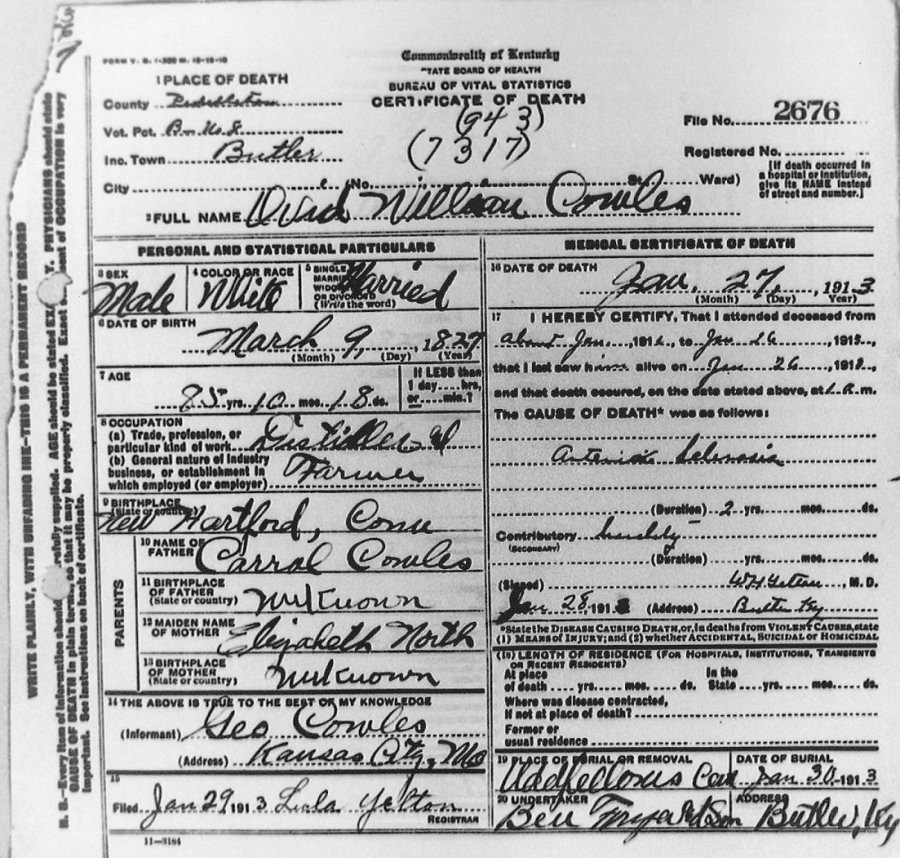 FORM V. S. 1-300 M. 10-10-10
Commonwealth of Kentucky
TATE BOARD OF HEALTH
BUREAU OF VITAL STATISTICS
CERTIFICATE OF DEATH
1 PLACE OF DEATH
County
Vot. Pct. B- No 8
Inc. Town Butler
(943)
(7317)
File No. 2676
Registered No.
City (No. St. Ward)
[If death occurred in a hospital or institution, give its NAME instead of street and number.]
2 FULL NAME Ovid William Cowles
PERSONAL AND STATISTICAL PARTICULARS
3 SEX Male
4 COLOR OR RACE White
5 SINGLE MARRIED WIDOWED OR DIVORCED (Write the word) Married
6 DATE OF BIRTH
March 9, 1827
(Month) (Day) (Year)
7 AGE
85 yrs. 10 mos. 18 ds.
If LESS than 1 day hrs. or min.?
8 OCCUPATION
(a) Trade, profession, or particular kind of work Distiller &
(b) General nature of industry business, or establishment in which employed (or employer) Farmer
9 BIRTHPLACE
(State or country)
New Hartford, Conn
PARENTS
10 NAME OF FATHER Carral Cowles
11 BIRTHPLACE OF FATHER (State or country) Unknown
12 MAIDEN NAME OF MOTHER Elizabeth North
13 BIRTHPLACE OF MOTHER (State or country) Unknown
14 THE ABOVE IS TRUE TO THE BEST OF MY KNOWLEDGE
(Informant) Geo Cowles
(Address) Kansas City, Mo
15
Filed Jan 29 1913 Lula Yelton
REGISTRAR
11-3184
MEDICAL CERTIFICATE OF DEATH
16 DATE OF DEATH
Jan, 27, 1913
(Month) (Day) (Year)
17 I HEREBY CERTIFY, That I attended deceased from
about Jan 191 , to Jan 26 191 ,
that I last saw him alive on Jan 26 191 ,
and that death occured, on the date stated above, at 1 a.m.
The CAUSE OF DEATH* was as follows:
Arterio Sclerosis
(Duration) 2 yrs. mos. ds.
Contributory Senility
(SECONDARY)
(Duration) yrs. mos. ds.
(Signed) W H Yelton M. D.
Jan 28, 1913 (Address) Butler Ky
*State the DISEASE CAUSING DEATH, or, in deaths from VIOLENT CAUSES, state
(1) MEANS OF INJURY; and (2) whether ACCIDENTAL, SUICIDAL or HOMICIDAL
(18) LENGTH OF RESIDENCE (FOR HOSPITALS, INSTITUTIONS, TRANSIENTS OR RECENT RESIDENTS)
At place of death yrs. mos. ds. In the State yrs. mos. ds.
Where was disease contracted,
If not at place of death?
Former or
usual residence
19 PLACE OF BURIAL OR REMOVAL
Oddfellows Cem
DATE OF BURIAL
Jan 30 1913
20 UNDERTAKER
Ben Fryer & Son
ADDRESS
Butler, Ky
WRITE PLAINLY, WITH UNFADING INK—THIS IS A PERMANENT RECORD
N. B.—Every item of information should be carefully supplied. AGE should be stated EX Y. PHYSICIANS should state
CAUSE OF DEATH in plain terms, so that it may be properly classified. Exact ent of OCCUPATION is very
important. See instructions on back of certificate.